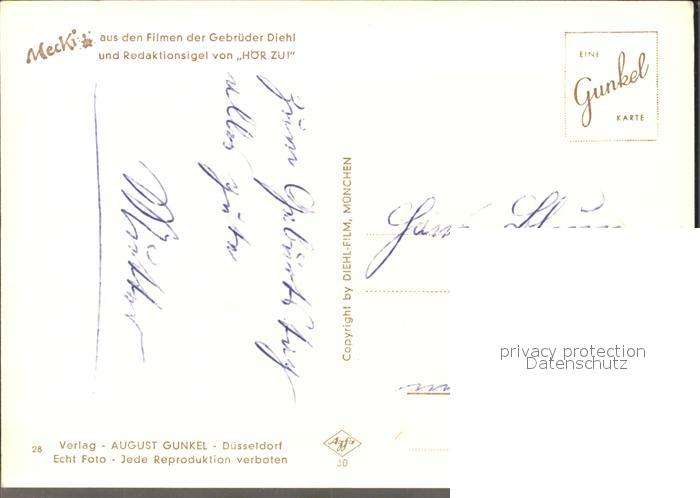 Mecki aus den Filmen der Gebrüder Diehl
und Redaktionsigel von „HÖR ZU!"
EINE
Gunkel
KARTE
Zum Geburtstag
alles Gute
Mutter
Copyright by DIEHL-FILM, MÜNCHEN
privacy protection
Datenschutz
Agfa
3D
28 Verlag - AUGUST GUNKEL - Düsseldorf
Echt Foto - Jede Reproduktion verboten